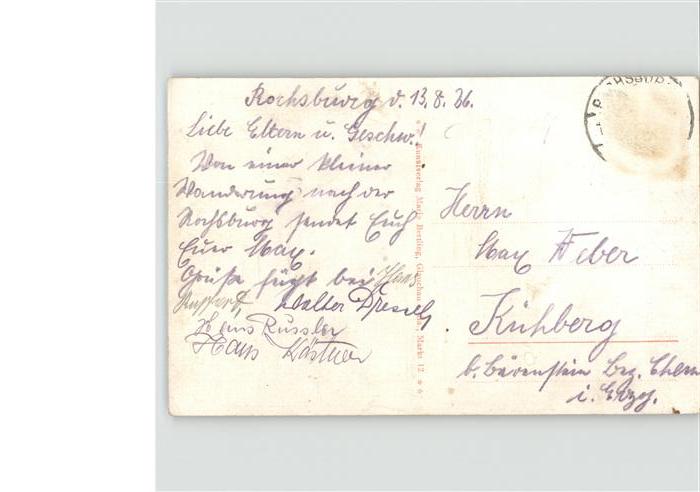 Rochsburg d. 13.8.36.
Liebe Eltern u. Geschw.!
Von einer kleiner
Wanderung nach der
Rochsburg sendet Euch
Euer Max.
Grüße fügt bei Hans
Ruppert Walter Dressel
Hans Russler
Hans Kästner
Kunstverlag Martin Bertling, Glauchau Markt 12.
Herrn
Max Weber
Kühberg
b. Bärenstein Bez. Chem
i. Erzg.